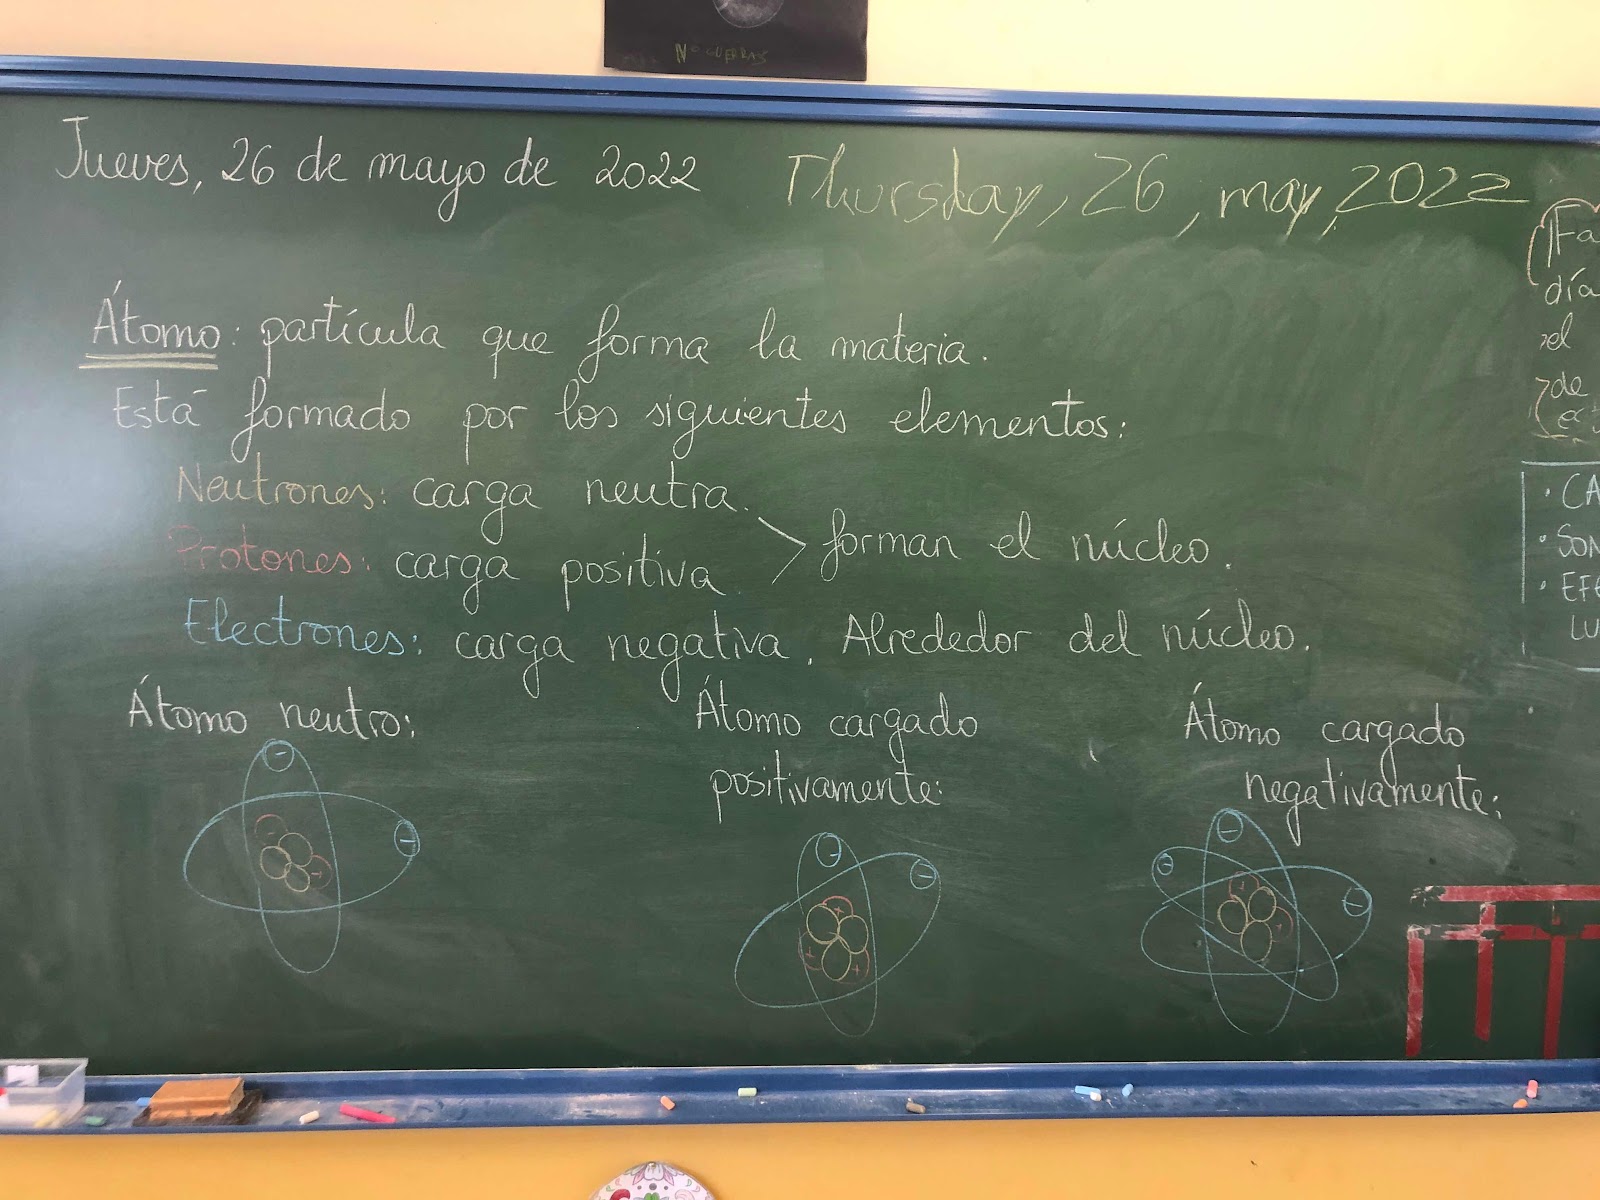 Nº GUERRAS
Jueves, 26 de mayo de 2022
Thursday, 26, may, 2022
Átomo: partícula que forma la materia.
Está formado por los siguientes elementos:
Neutrones: carga neutra.
Protones: carga positiva
forman el núcleo.
Electrones: carga negativa. Alrededor del núcleo.
Átomo neutro:
Átomo cargado
positivamente:
Átomo cargado
negativamente:
día
el
de
· CA
· SON
· EFE
LU